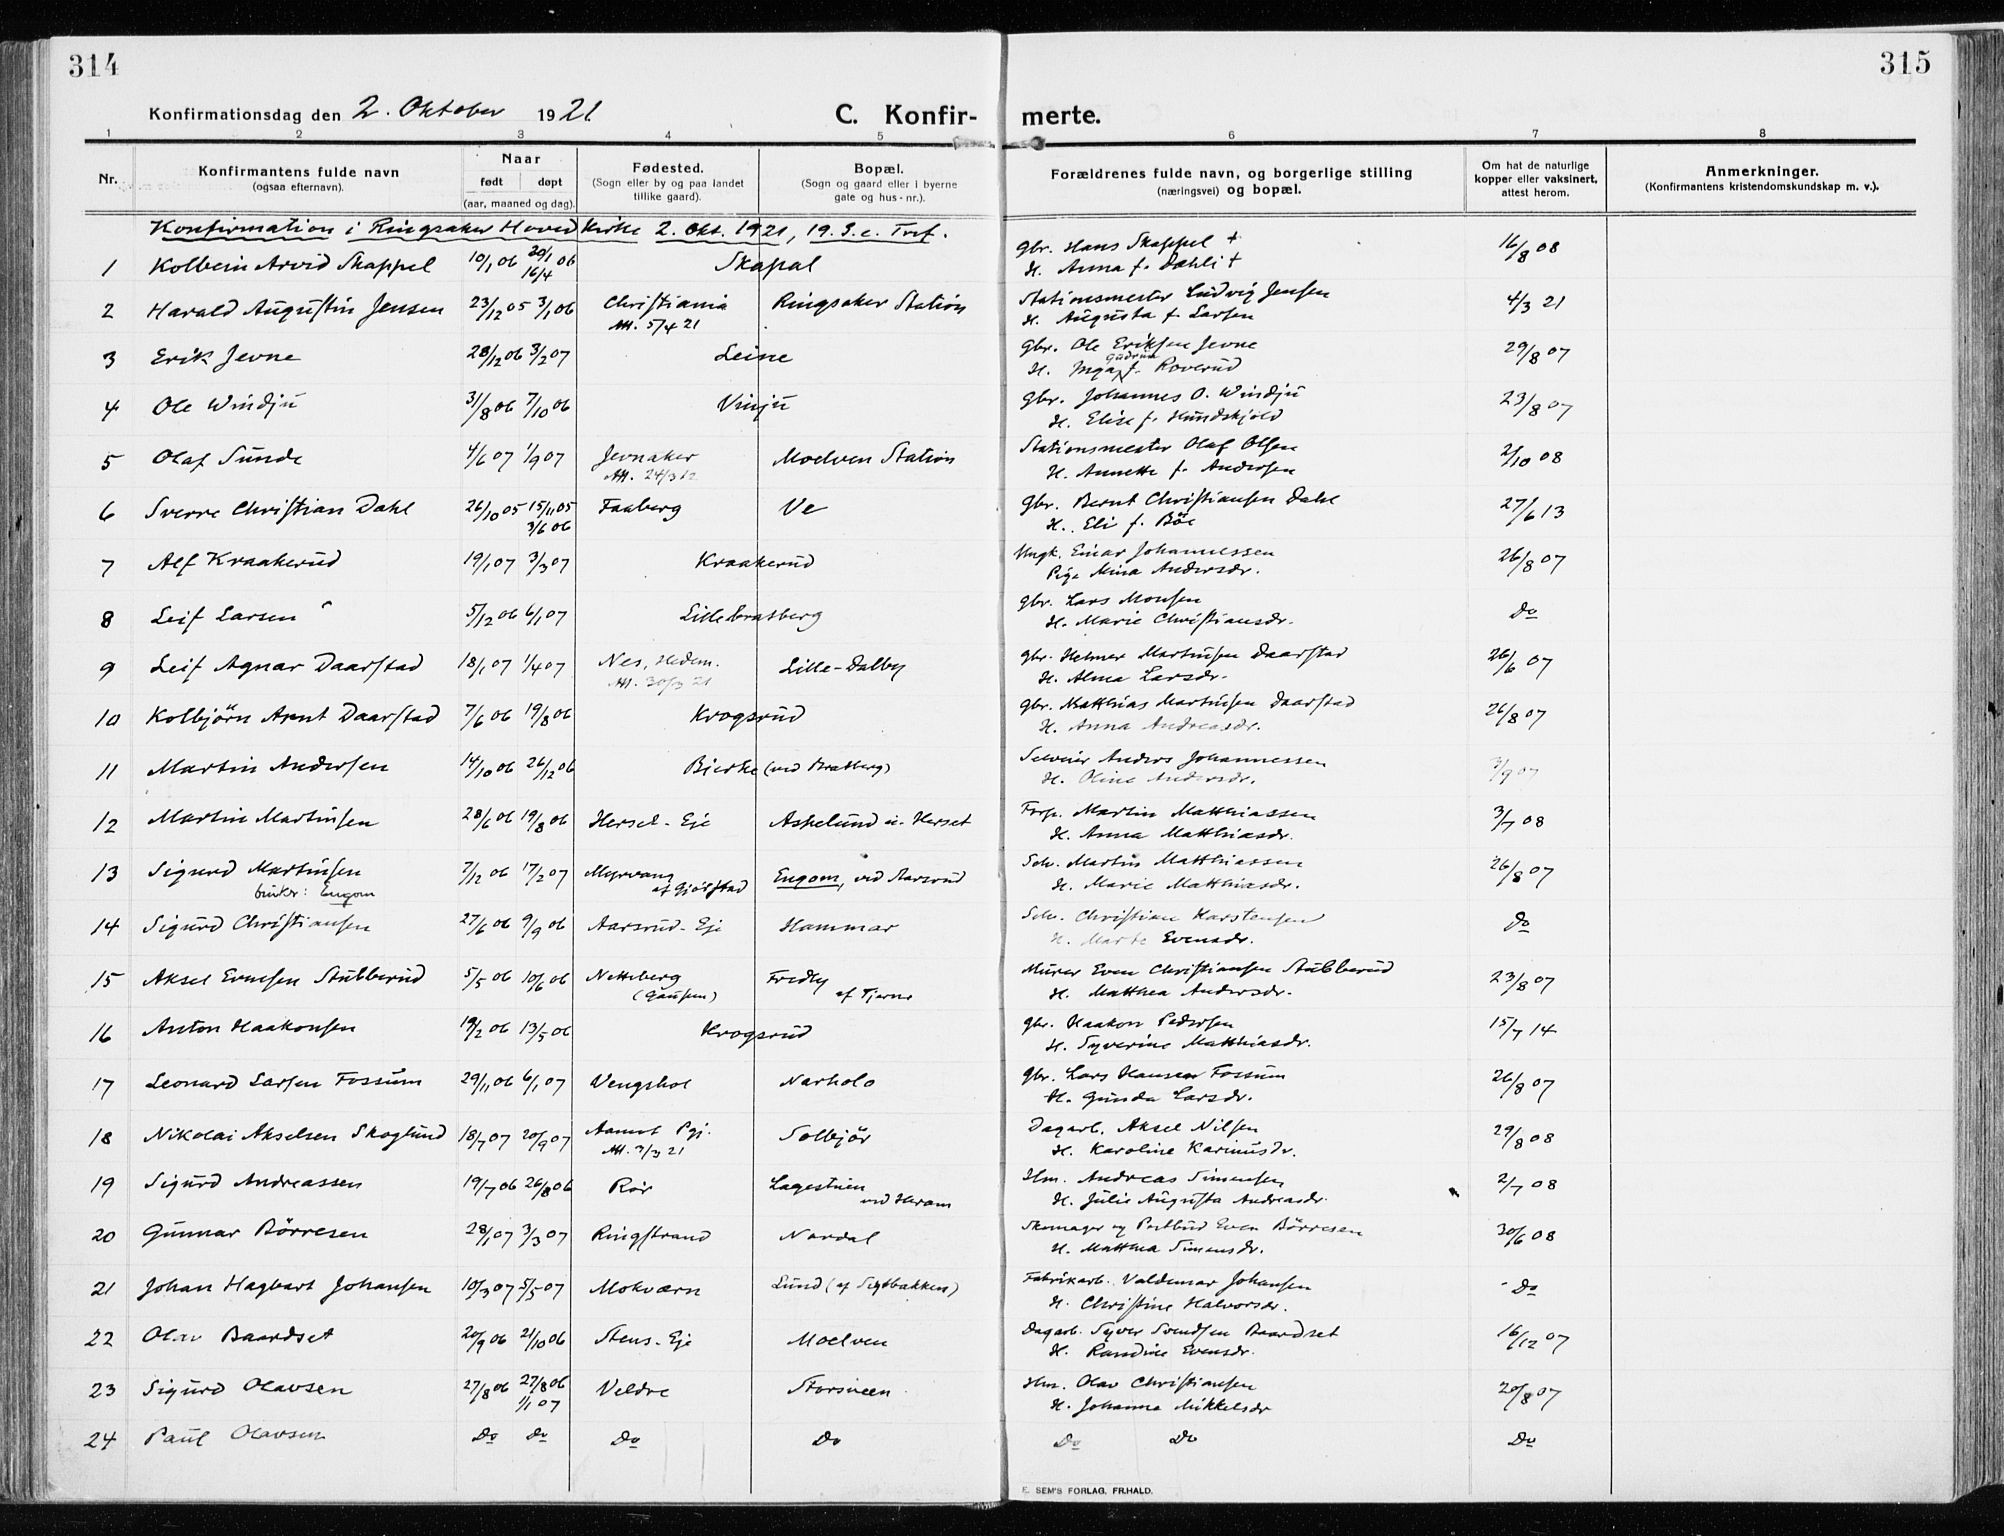 314
315
Konfirmationsdag den 2. Oktober 1921
C. Konfir- merte.
1 2 3 4 5 6 7 8
Nr. Konfirmantens fulde navn (ogsaa efternavn). Naar født døpt (aar, maaned og dag). Fødested. (Sogn eller by og paa landet tillike gaard). Bopæl. (Sogn og gaard eller i byerne gate og hus-nr.). Forældrenes fulde navn, og borgerlige stilling (næringsvei) og bopæl. Om hat de naturlige kopper eller vaksinert, attest herom. Anmerkninger. (Konfirmantens kristendomskundskap m. v.).
Konfirmation i Ringsaker Hovedkirke 2. Okt. 1921, 19. S. e. Tref.
1 Kolbein Arvid Skappel 10/1 06 20/1 06 16/4 Skapal Gbr. Hans Skappel + H. Anna f. Dæhli + 16/8 08
2 Harald Augustin Jensen 23/12 05 3/1 06 Christiania Att. 5/4 21 Ringsaker Station Stationsmester Ludvig Jensen H. Augusta f. Larsen 4/3 21
3 Erik Jevne 28/12 06 3/2 07 Leine Gbr. Ole Eriksen Jevne H. Inga Gudrun f. Roverud 29/8 07
4 Ole Windju 31/8 06 7/10 06 Vinju Gbr. Johannes O. Windju H. Elise f. Hundskjold 23/8 07
5 Olaf Sunde 4/6 07 1/9 07 Jevnaker Att. 24/3 12 Moelven Station Stationsmester Olaf Olsen H. Annette f. Andersen 2/10 08
6 Sverre Christian Dahl 26/10 05 15/11 05 3/6 06 Faaberg Ve Gbr. Bernt Christiansen Dahl H. Eli f. Böe 27/6 13
7 Alf Kraakerud 19/1 07 3/3 07 Kraakerud Ungk. Einar Johannessen Pige Mina Andersdr. 26/8 07
8 Leif Larsen 5/12 06 6/1 07 Lillebratberg Gbr. Lars Monsen H. Marie Christiansdr. Do
9 Leif Agnar Daarstad 18/1 07 1/4 07 Nes, Hedem. Att. 30/3 21 Lille-Dalby Gbr. Helmer Martinsen Daarstad H. Alma Larsdr. 26/6 07
10 Kolbjörn Arnt Daarstad 7/6 06 19/8 06 Krogsrud Gbr. Matthias Martinsen Daarstad H. Anna Andreasdr. 26/8 07
11 Martin Andersen 14/10 06 26/12 06 Bjerke (ved Bratberg) Selveier Anders Johannessen H. Oline Andersdr. 3/9 07
12 Martin Martinsen 28/6 06 19/8 06 Herset-Eje Askelund u. Herset Forp. Martin Matthiassen H. Anna Matthiasdr. 3/7 08
13 Sigurd Martinsen bruker: Engom 7/12 06 17/2 07 Myrvang af Gjörstad Engom, ved Aarsrud Selv. Martin Matthiassen H. Marie Matthiasdr. 26/8 07
14 Sigurd Christiansen 27/6 06 9/9 06 Aarsrud-Eje Hammar Selv. Christian Karstensen H. Marte Evensdr. Do
15 Aksel Evensen Stubberud 5/5 06 10/6 06 Netteberg (Gaupen) Fredly af Tjerne Murer Even Christiansen Stubberud H. Matthea Andersdr. 23/8 07
16 Anton Haakonsen 19/2 06 13/5 06 Krogsrud Gbr. Haakon Pedersen H. Syverine Matthiasdr. 15/7 14
17 Leonard Larsen Fossum 29/11 06 6/1 07 Vengshol Narholo Gbr. Lars Hansen Fossum H. Gunda Larsdr. 26/8 07
18 Nikolai Akselsen Skoglund 18/7 07 20/9 07 Aamot Pgj. Att. 3/3 21 Solbjör Dagarb. Aksel Nilsen H. Karoline Karinusdr. 29/8 08
19 Sigurd Andreassen 19/7 06 26/8 06 Rör Lagestuen ved Heram Hm. Andreas Simensen H. Julie Augusta Andreasdr. 2/7 08
20 Gunnar Börresen 28/1 07 3/3 07 Ringstrand Nordal Skomager og Postbud Even Börresen H. Matthea Simensdr. 30/6 08
21 Johan Hagbart Johansen 10/3 07 5/5 07 Mokværn Lund (af Sigtbakken) Fabrikarb. Valdemar Johansen H. Christine Halvorsdr. Do
22 Olav Baardset 20/9 06 21/10 06 Stens-Eje Moelven Dagarb. Syver Svendsen Baardset H. Randine Evensdr. 16/12 07
23 Sigurd Olavsen 27/8 06 27/8 06 1/1 07 Veldre Storsveen Hm. Olav Christiansen H. Johanna Mikkelsdr 20/8 07
24 Paul Olavsen Do Do Do Do Do Do Do
E. SEM'S FORLAG, FR.HALD.